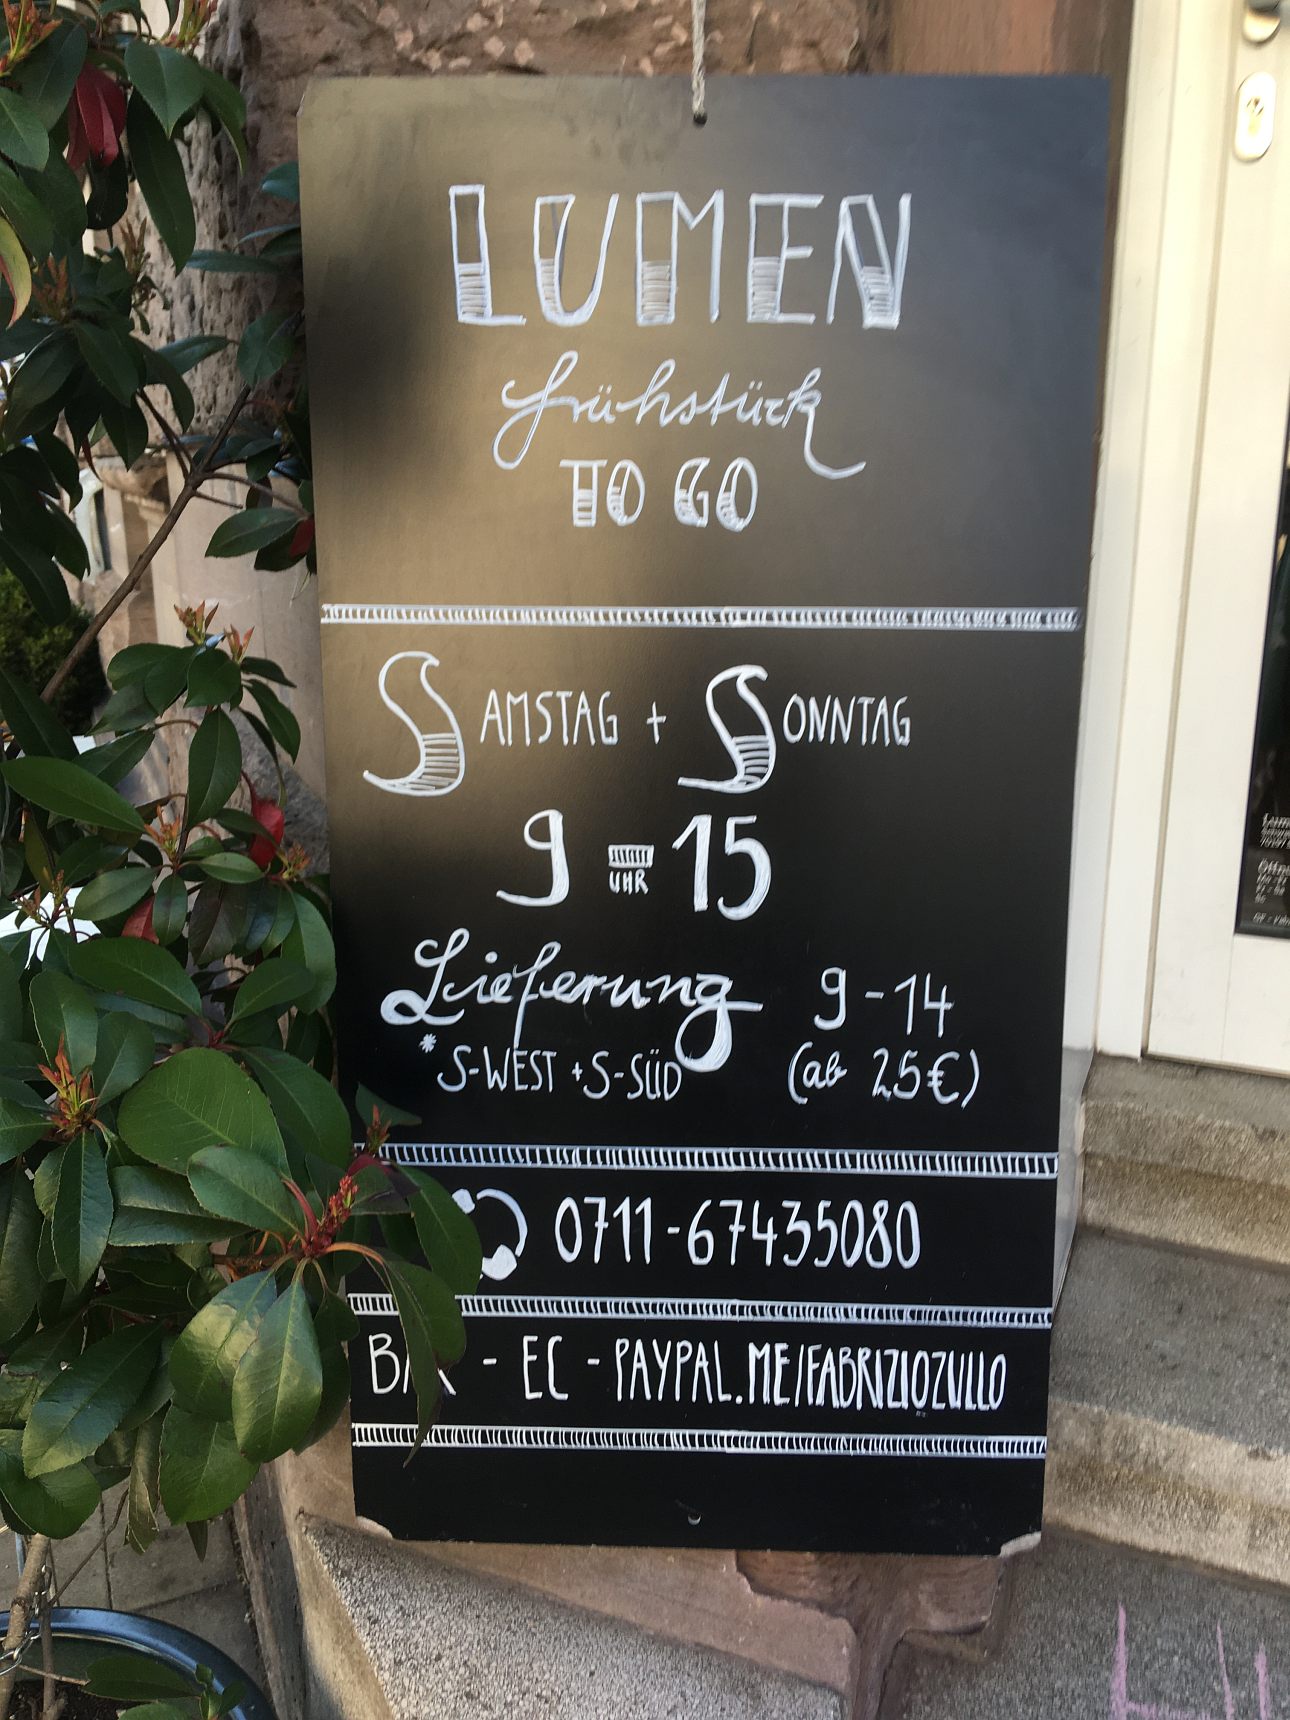 LUMEN
frühstück
TO GO
SAMSTAG + SONNTAG
9 - 15
UHR
Lieferung 9-14
* S-WEST + S-SÜD (ab 25€)
0711-67435080
BAR - EC - PAYPAL.ME/FABRIZIOZULLO